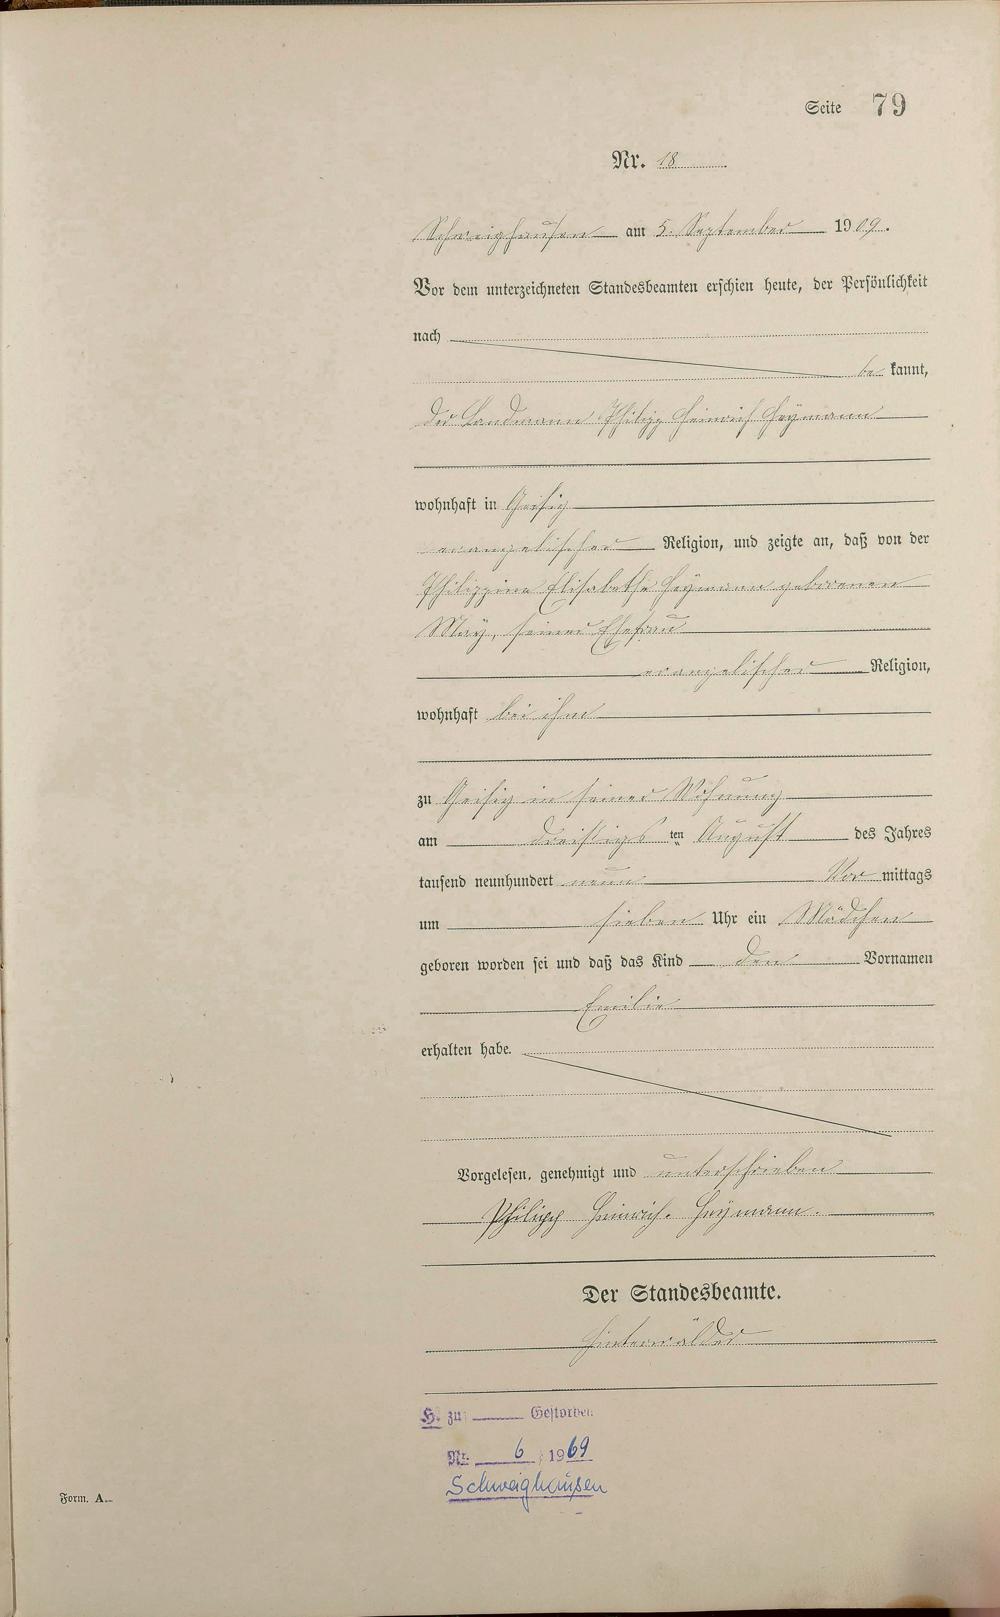 Seite 79
Nr. 18
Schweighausen am 5. September 1909.
Vor dem unterzeichneten Standesbeamten erschien heute, der Persönlichkeit
nach
be kannt,
der Landmann Philipp Heinrich Heymann
wohnhaft in Geisig
evangelischer Religion, und zeigte an, daß von der
Philippine Elisabethe Heymann geborenen
May, seiner Ehefrau
evangelischer Religion,
wohnhaft bei ihm
zu Geisig in seiner Wohnung
am dreißigsten August des Jahres
tausend neunhundert neun Vor mittags
um sieben Uhr ein Mädchen
geboren worden sei und daß das Kind den Vornamen
Emilie
erhalten habe.
Vorgelesen, genehmigt und unterschrieben
Philipp Heinrich. Heymann.
Der Standesbeamte.
Hinterwälder
H. zu Gestorben
Nr. 6 / 1969
Schweighausen
Form. A.